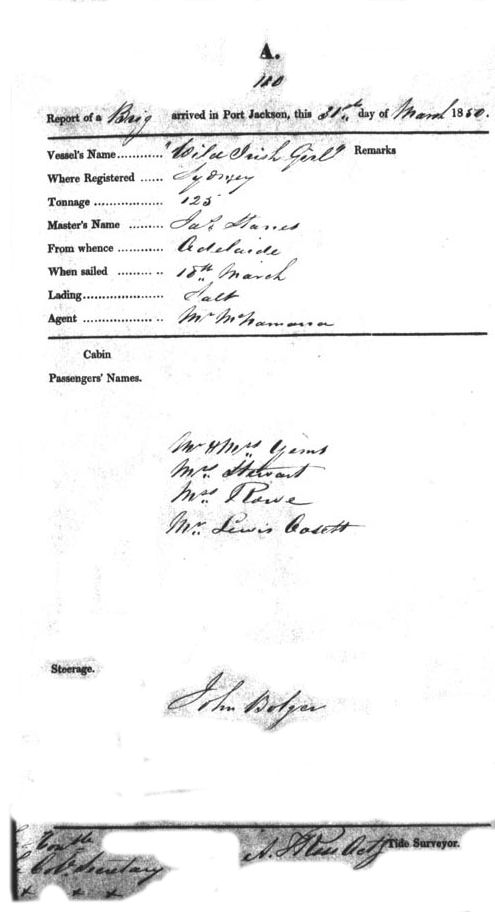 A.
180
Report of a Brig arrived in Port Jackson, this 31st day of March 1850.
Vessel's Name............ "Wild Irish Girl" Remarks
Where Registered ...... Sydney
Tonnage .................. 125
Master's Name ......... Jas.
From whence ............ Adelaide
When sailed ......... .. 18th March
Lading..................... Salt
Agent .................... .. Mr McNamara
Cabin
Passengers' Names.
Mr & Mrs Yems
Mrs. Stewart
Mrs Rowe
Mr. Lewis Cosett
Steerage.
John Bolger
Tide Surveyor.
Secretary